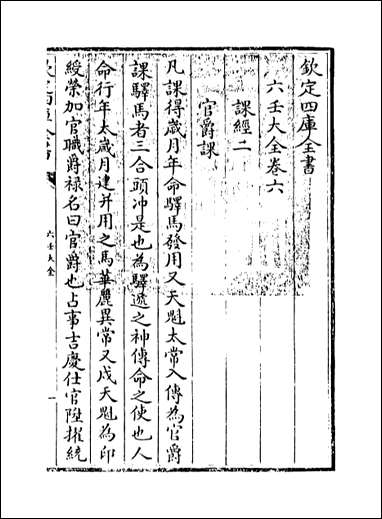 欽定四庫全書
六壬大全卷六
課經二
官爵課
凡課得歲月年命驛馬發用又天魁太常入傳為官爵
課驛馬者三合頭沖是也為驛遞之神傳命之使也人
命行年太歲月建并用之馬華麗異常又戌天魁為印
綬榮加官職爵祿名曰官爵也占事吉慶仕官陞擢統
六壬大全
一